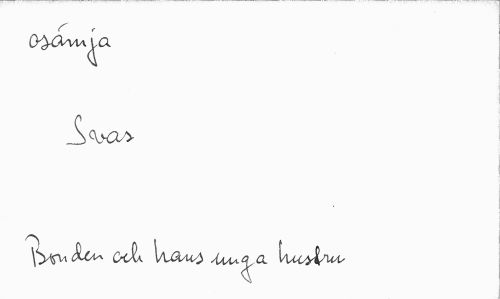 osámja
Svas
Bonden och hans unga hustru